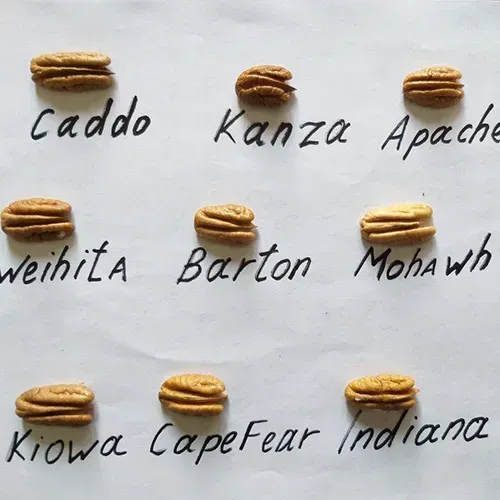 Caddo Kanza Apache
Weihita Barton Mohawh
Kiowa CapeFear Indiana